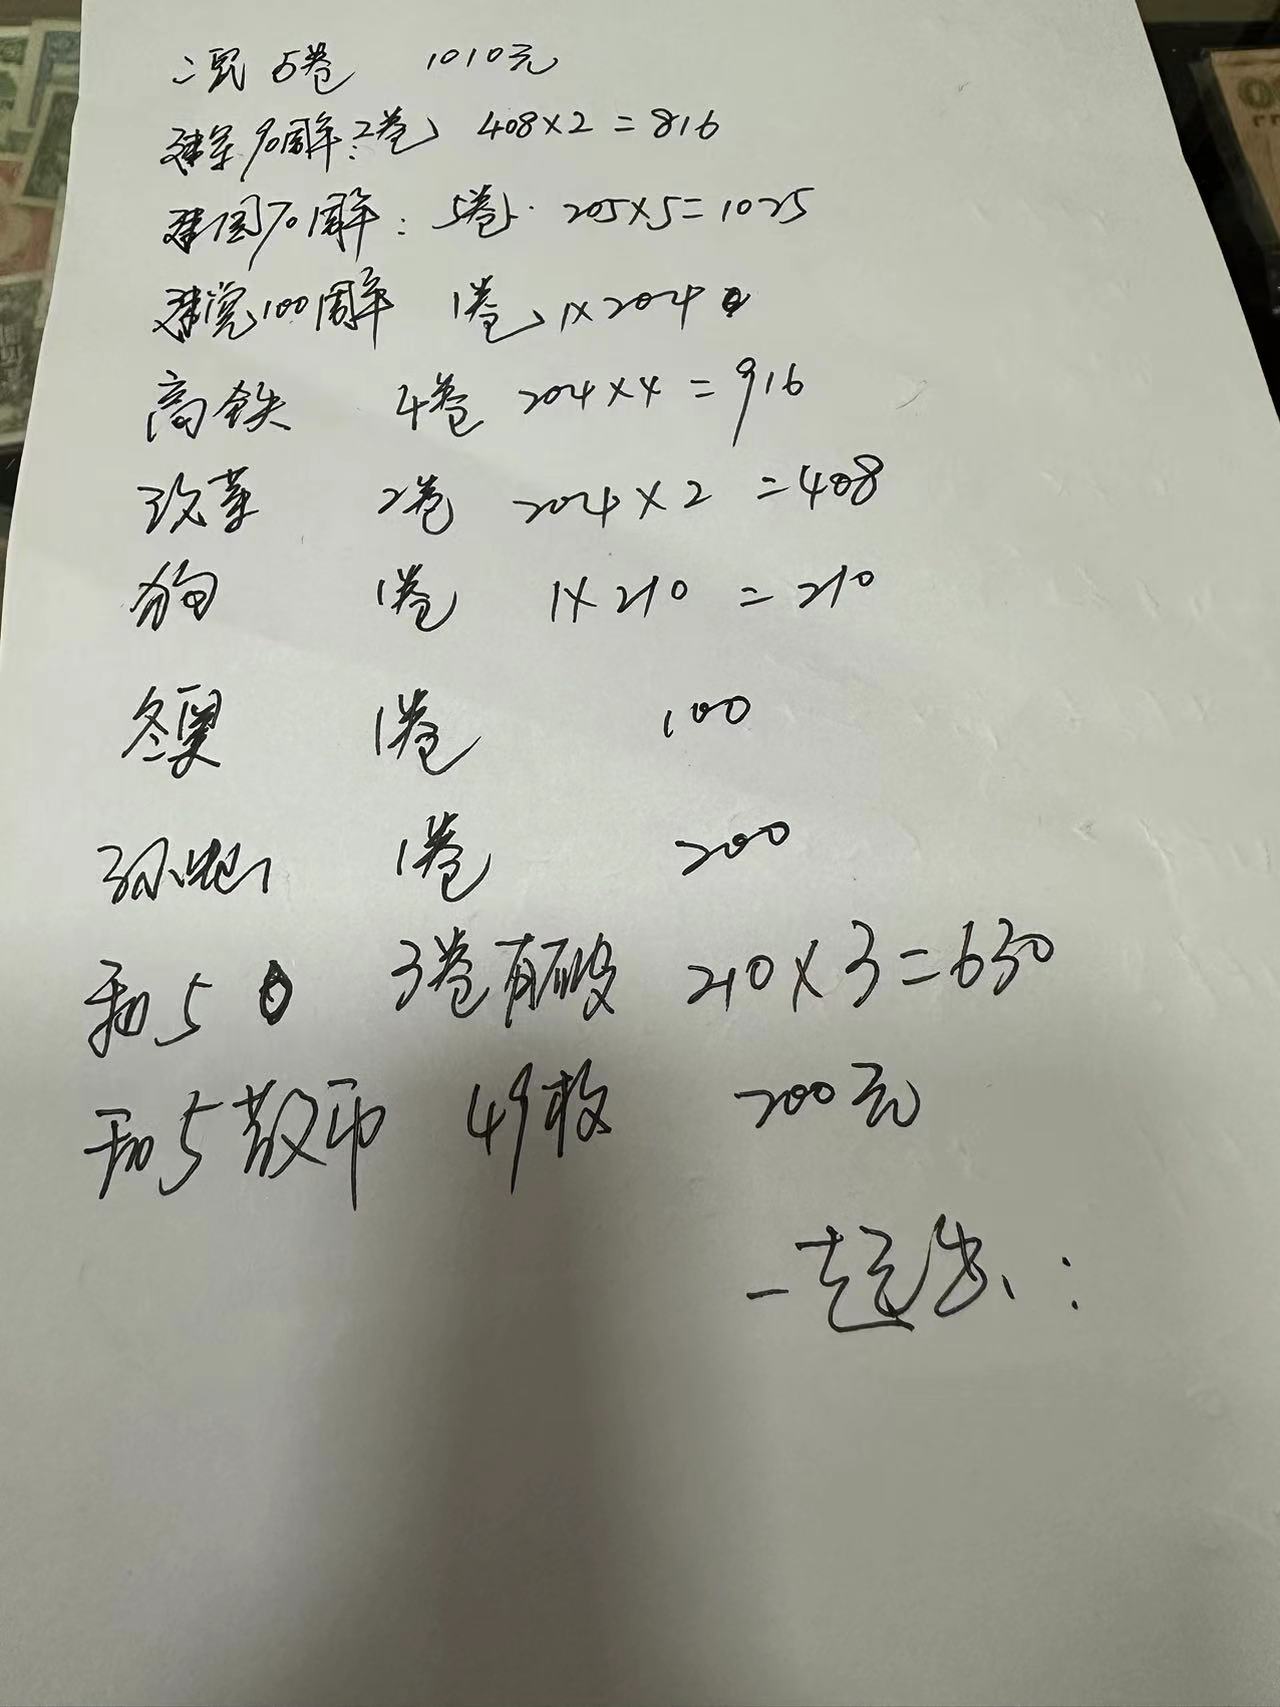 二鼠 5卷 1010元
建军90周年:2卷, 408×2=816
建国70周年: 5卷. 205×5=1025
建党100周年 1卷, 1×204
高铁 4卷 204×4=916
改革 2卷 204×2=408
狗 1卷 1×210=210
冬奥 1卷 100
孙中山 1卷 200
和5 3卷有破 210×3=630
和5散币 49枚 200元
一起出: